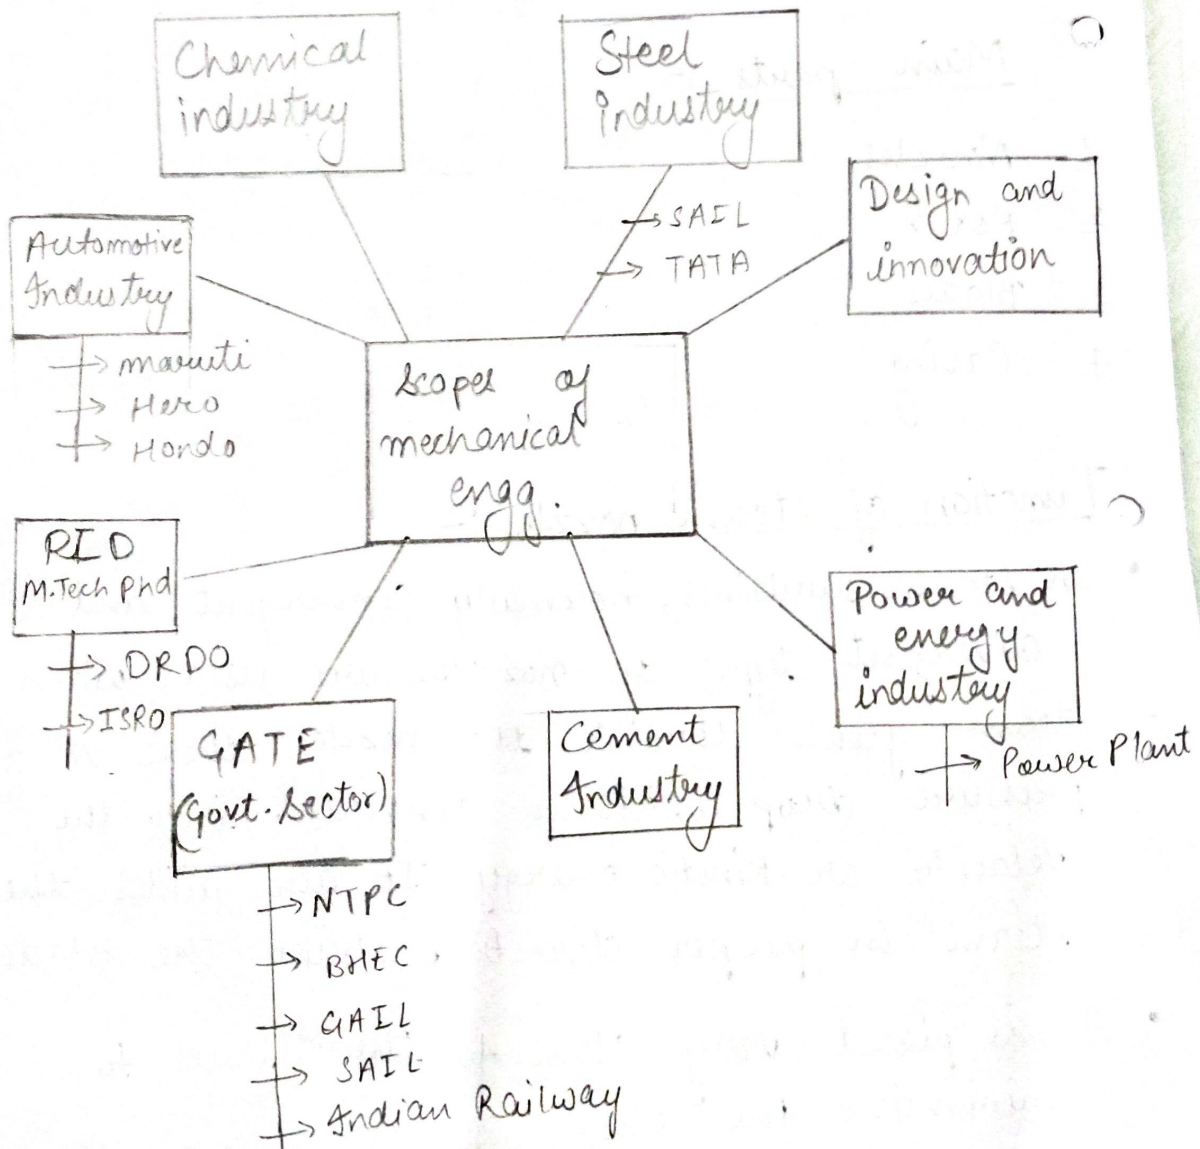 Chemical
industry
Steel
industry
→ SAIL
→ TATA
Design and
innovation
Automotive
Industry
→ maruti
→ Hero
→ Hondo
Scopes of
mechanical
engg.
RID
M.Tech Phd
→ DRDO
→ ISRO
GATE
(Govt. Sector)
→ NTPC
→ BHEC
→ GAIL
→ SAIL
→ Indian Railway
Cement
Industry
Power and
energy
industry
→ Power Plant